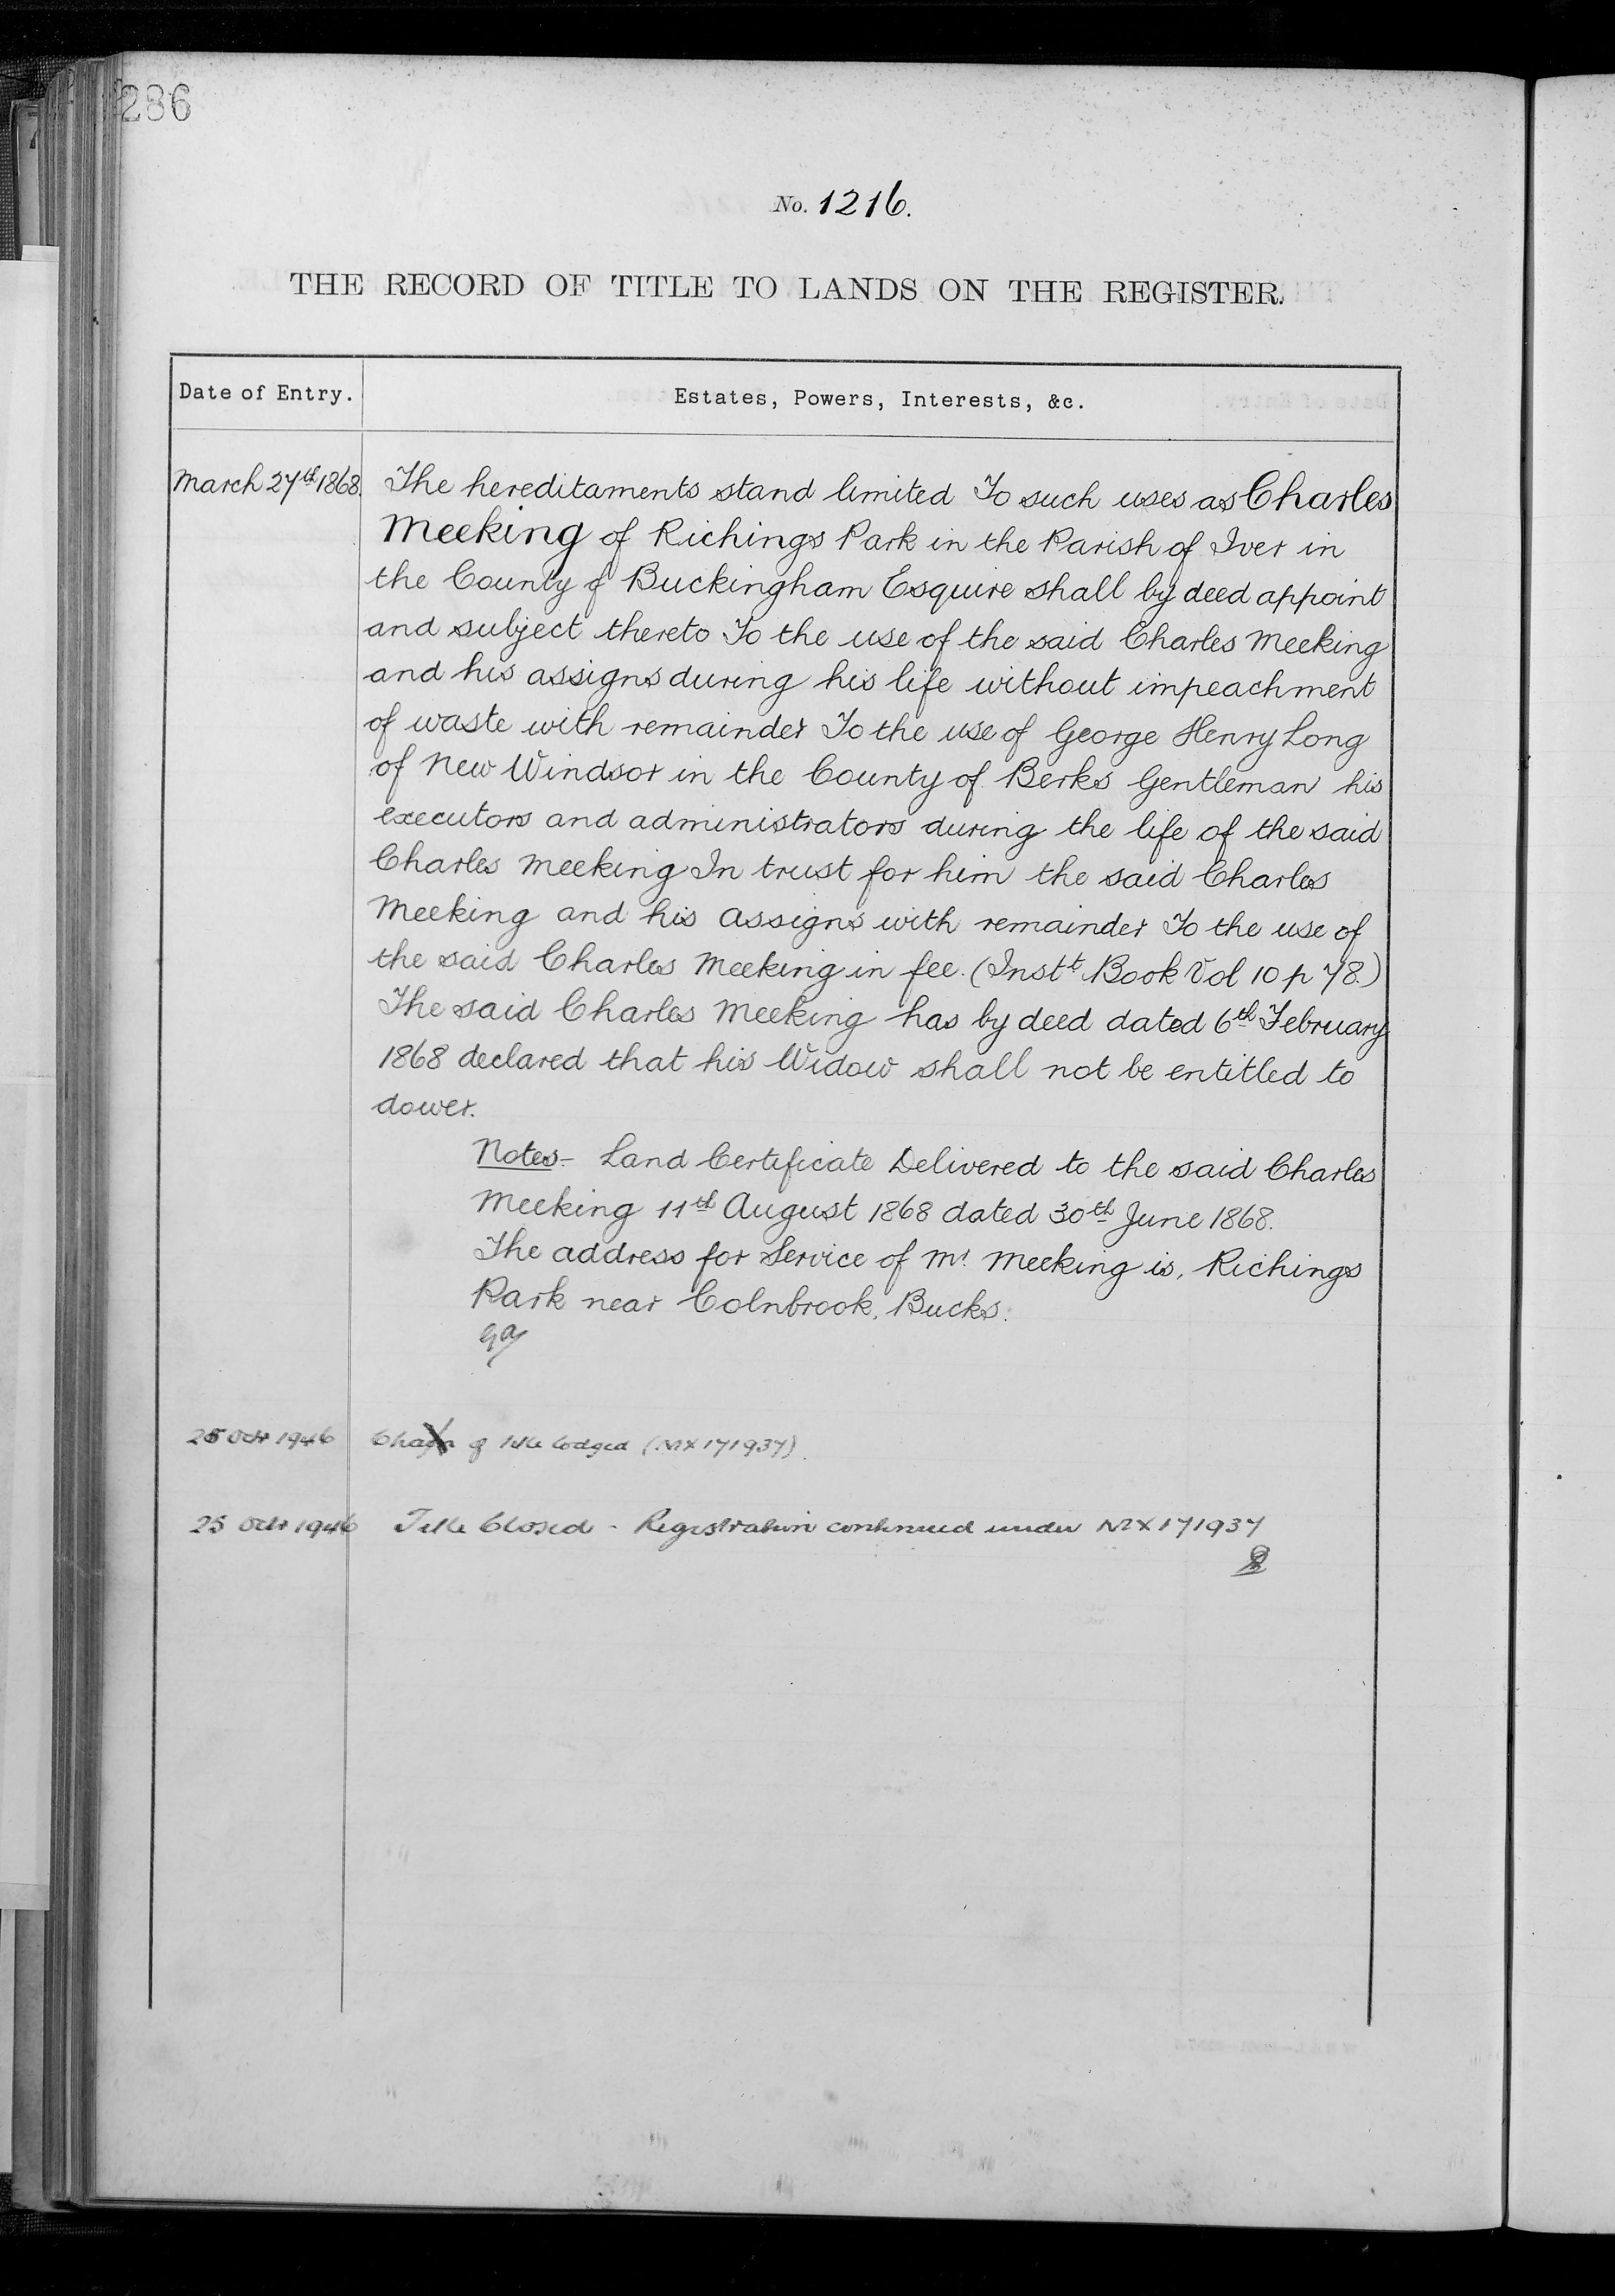 286
No. 1216.
THE RECORD OF TITLE TO LANDS ON THE REGISTER.
Date of Entry.
Estates, Powers, Interests, &c.
March 27th 1868. The hereditaments stand limited To such uses as Charles
Meeking of Richings Park in the Parish of Iver in
the County of Buckingham Esquire shall by deed appoint
and subject thereto To the use of the said Charles Meeking
and his assigns during his life without impeachment
of waste with remainder To the use of George Henry Long
of New Windsor in the County of Berks Gentleman his
executors and administrators during the life of the said
Charles Meeking In trust for him the said Charles
Meeking and his assigns with remainder To the use of
the said Charles Meeking in fee. (Instt. Book Vol 10 p 78.)
The said Charles Meeking has by deed dated 6th February
1868 declared that his Widow shall not be entitled to
dower.
Notes- Land Certificate Delivered to the said Charles
Meeking 11th August 1868 dated 30th June 1868.
The address for Service of Mr. Meeking is, Richings
Park near Colnbrook, Bucks.
25 Octr 1946 of title lodged (MX171937).
25 Octr 1946 Title Closed - Registration continued under MX171937